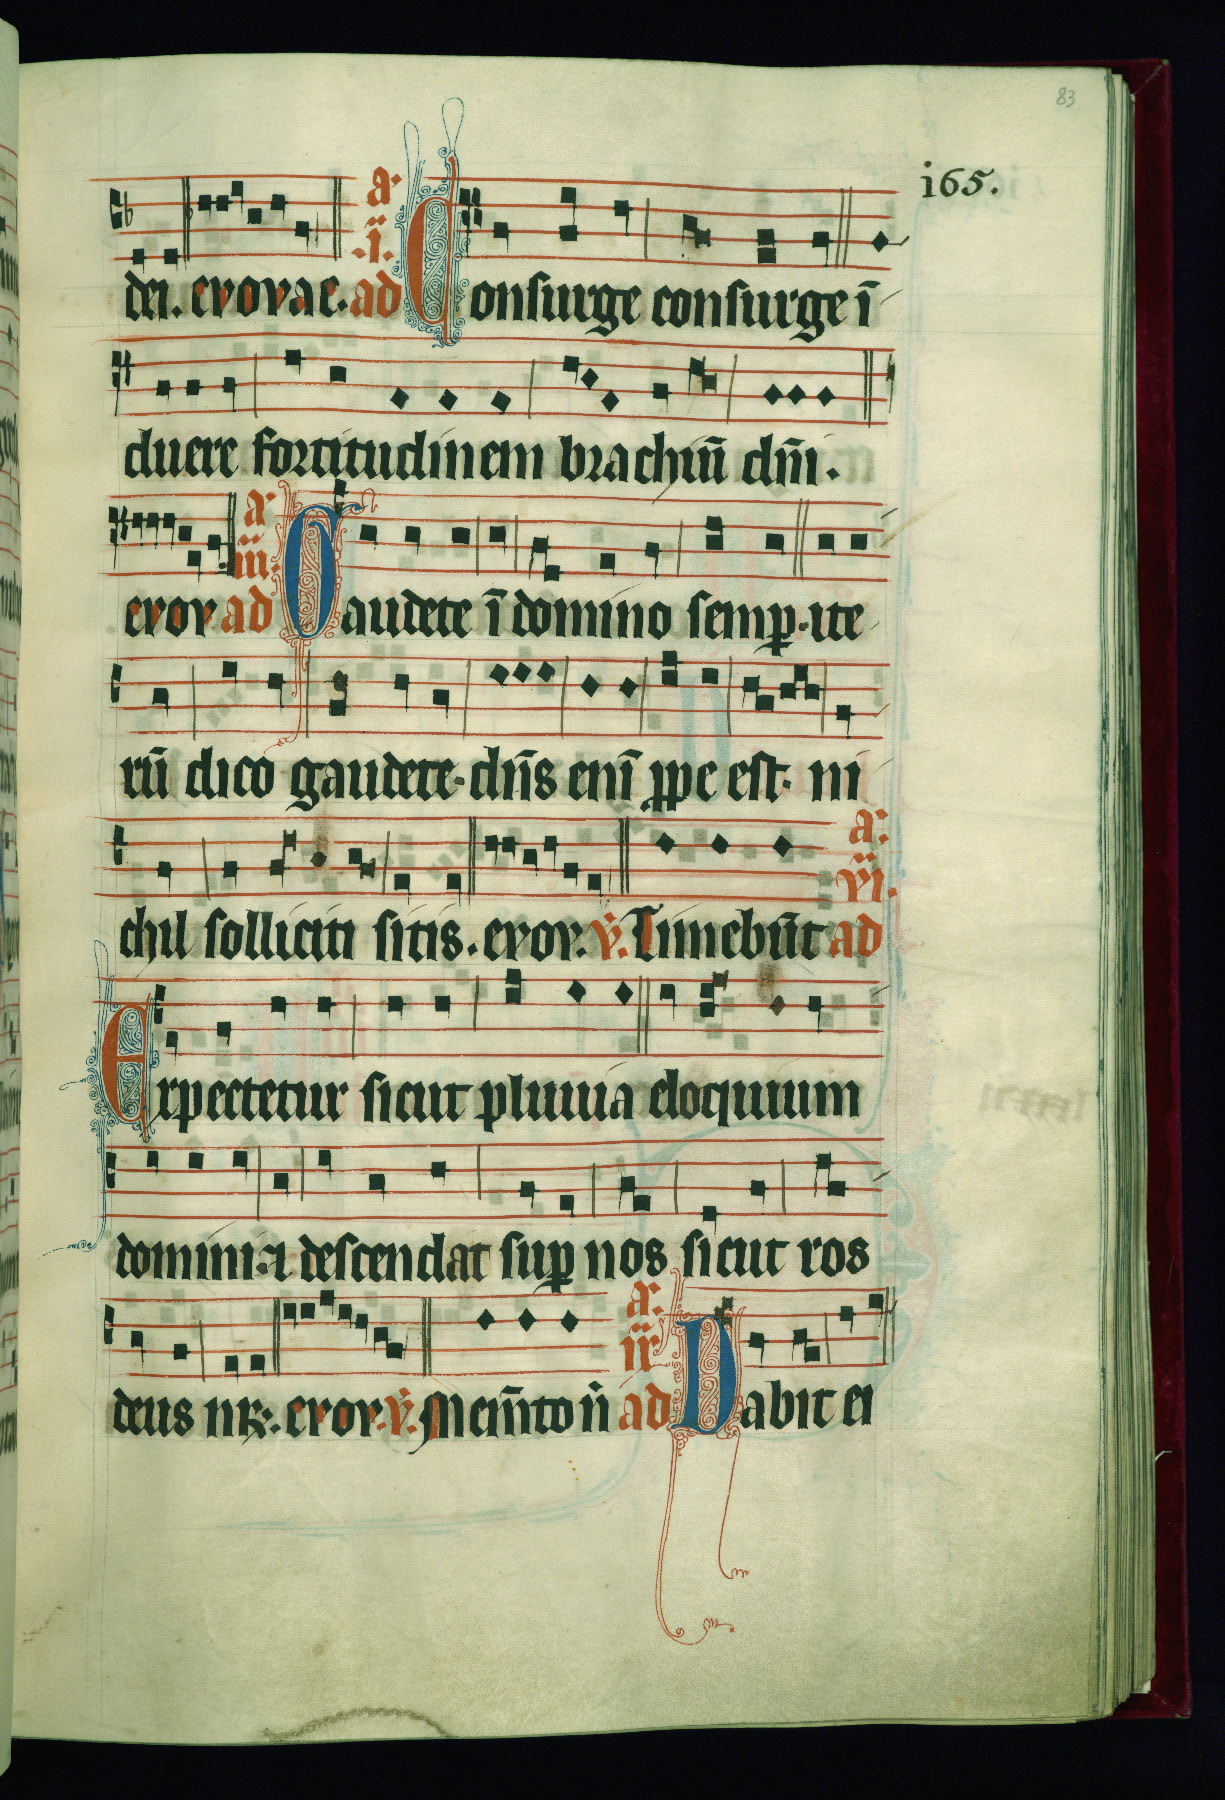 83
165.
a.
dei. evovae. ad Consurge consurge ī
.i.
duere fortitudinem brachiū dn̄i.
a.
iii.
evov ad Gaudete ī domino semp̱. ite
rū dico gaudete. dn̄s enī ꝓpe est. ni
a.
vi.
chil solliciti sitis. evov. v̇. Timebūt ad
Expectetur sicut pluuia eloquium
domini. ⁊ descendat sup̱ nos sicut ros
a.
ii.
deus nr̄. evov. v̇. Mem̄to n̄ ad Dabit ei